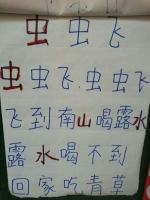 虫虫飞
虫虫飞.虫虫飞
飞到南山喝露水
露水喝不到
回家吃青草